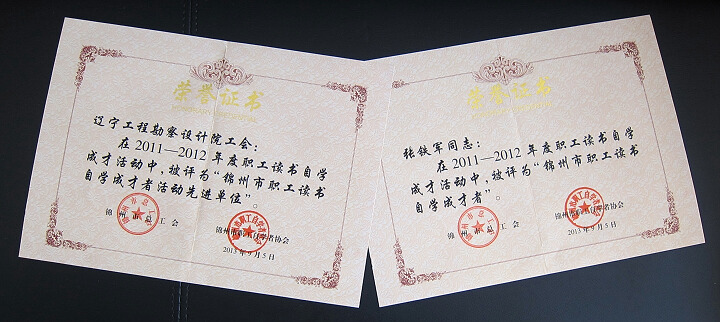 荣誉证书
辽宁工程勘察设计院工会：
在2011—2012年度职工读书自学
成才活动中，被评为“锦州市职工读书
自学成才者活动先进单位”。
锦州市总工会
锦州市职工自学者协会
2013年9月5日
荣誉证书
张铁军同志：
在2011—2012年度职工读书自学
成才活动中，被评为“锦州市职工读书
自学成才者”。
锦州市总工会
锦州市职工自学者协会
2013年9月5日